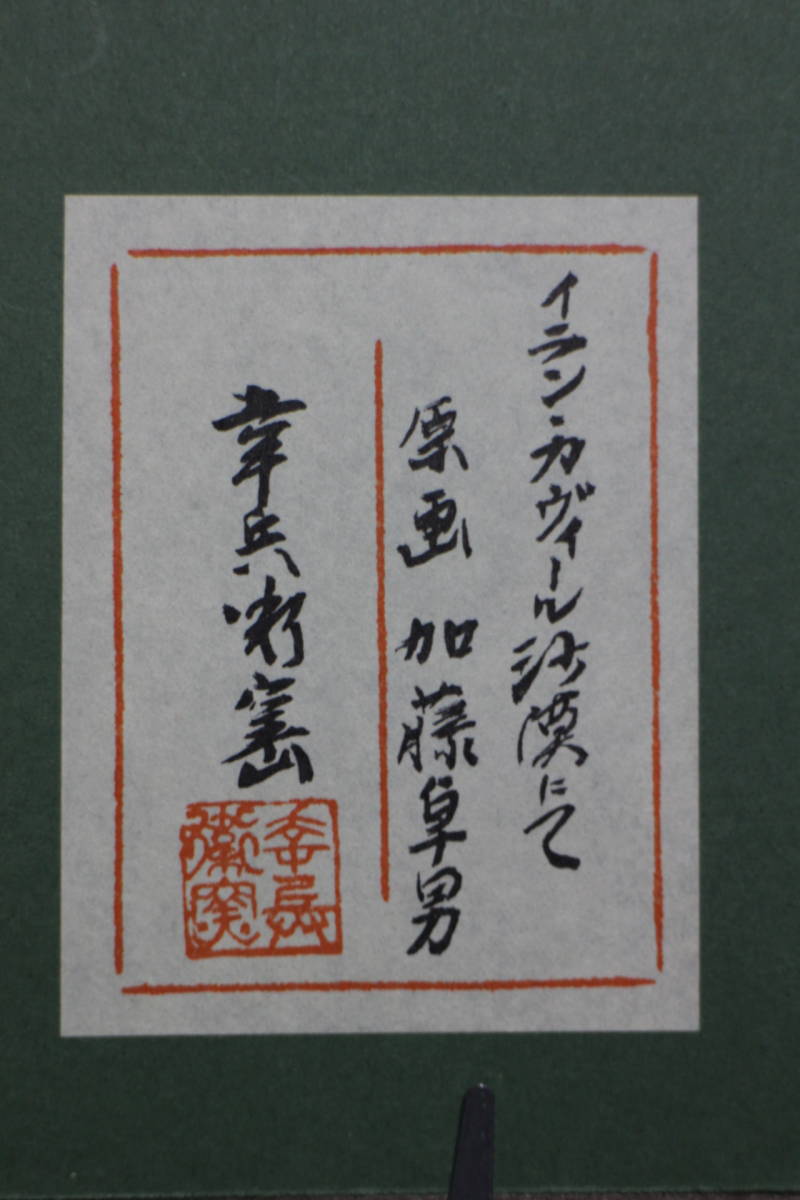 イラン・カヴィール沙漠にて
原画 加藤卓男
幸兵衛窯
幸兵衛窯